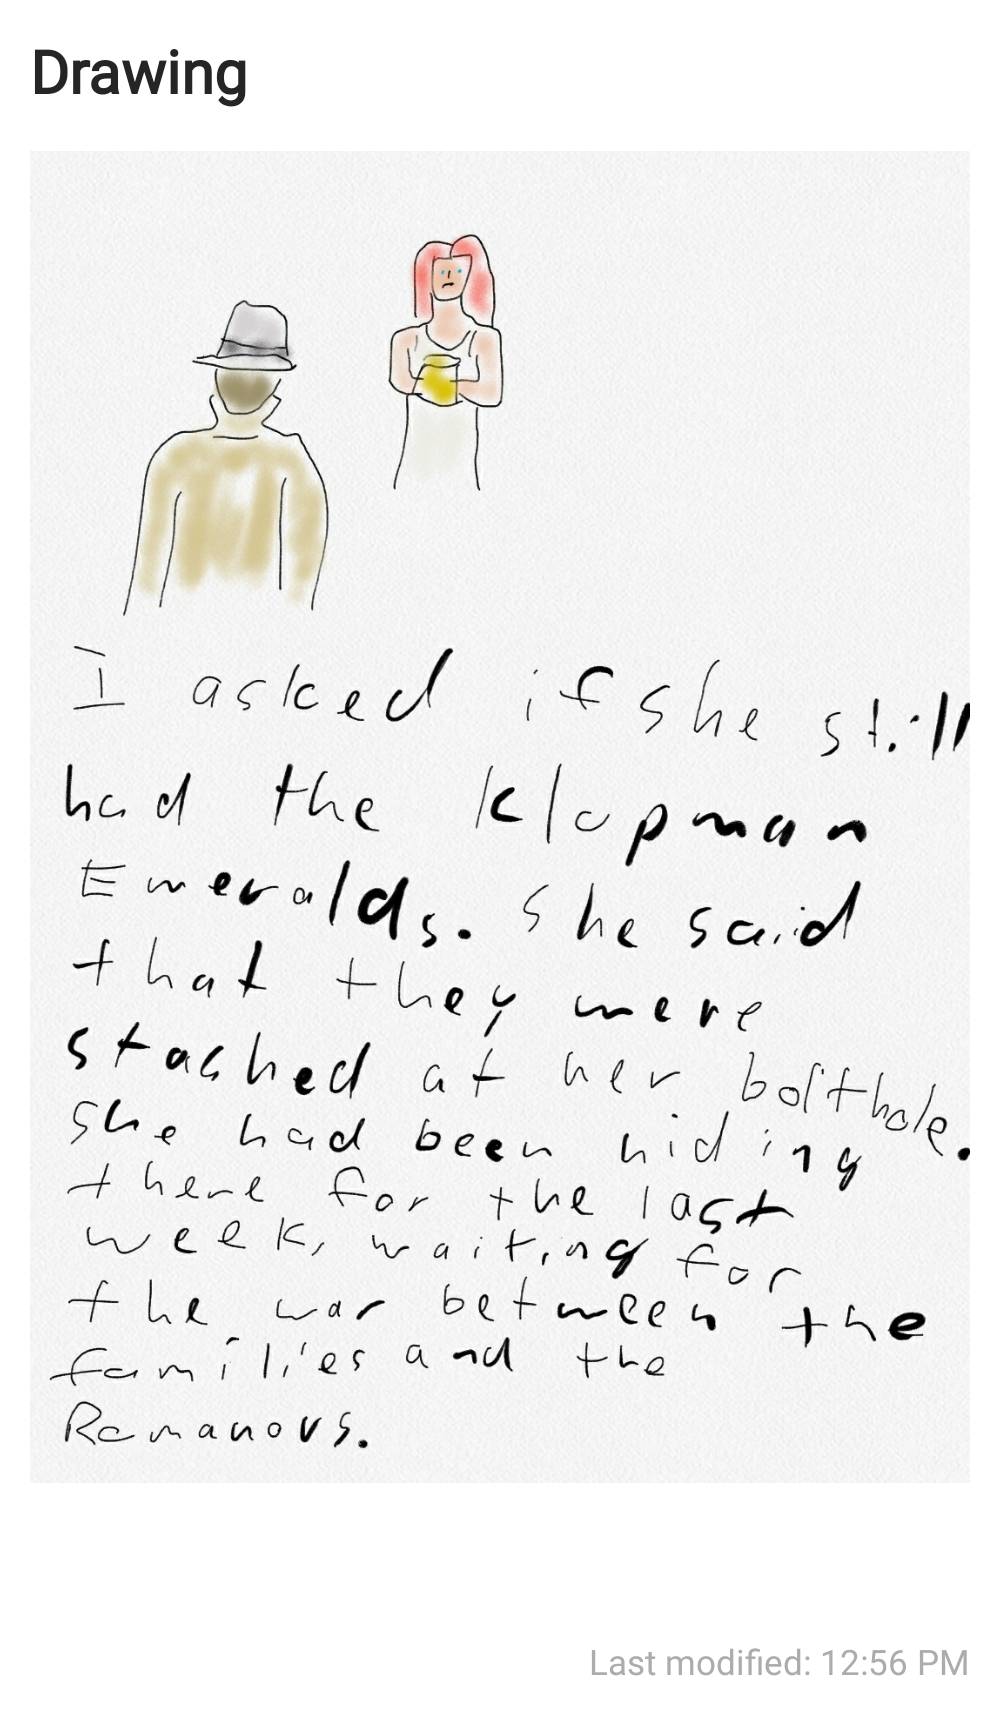 Drawing
I asked if she still
had the Klopman
Emeralds. She said
that they were
stashed at her bolthole.
She had been hiding
there for the last
week, waiting for
the war between the
families and the
Romanovs.
Last modified: 12:56 PM